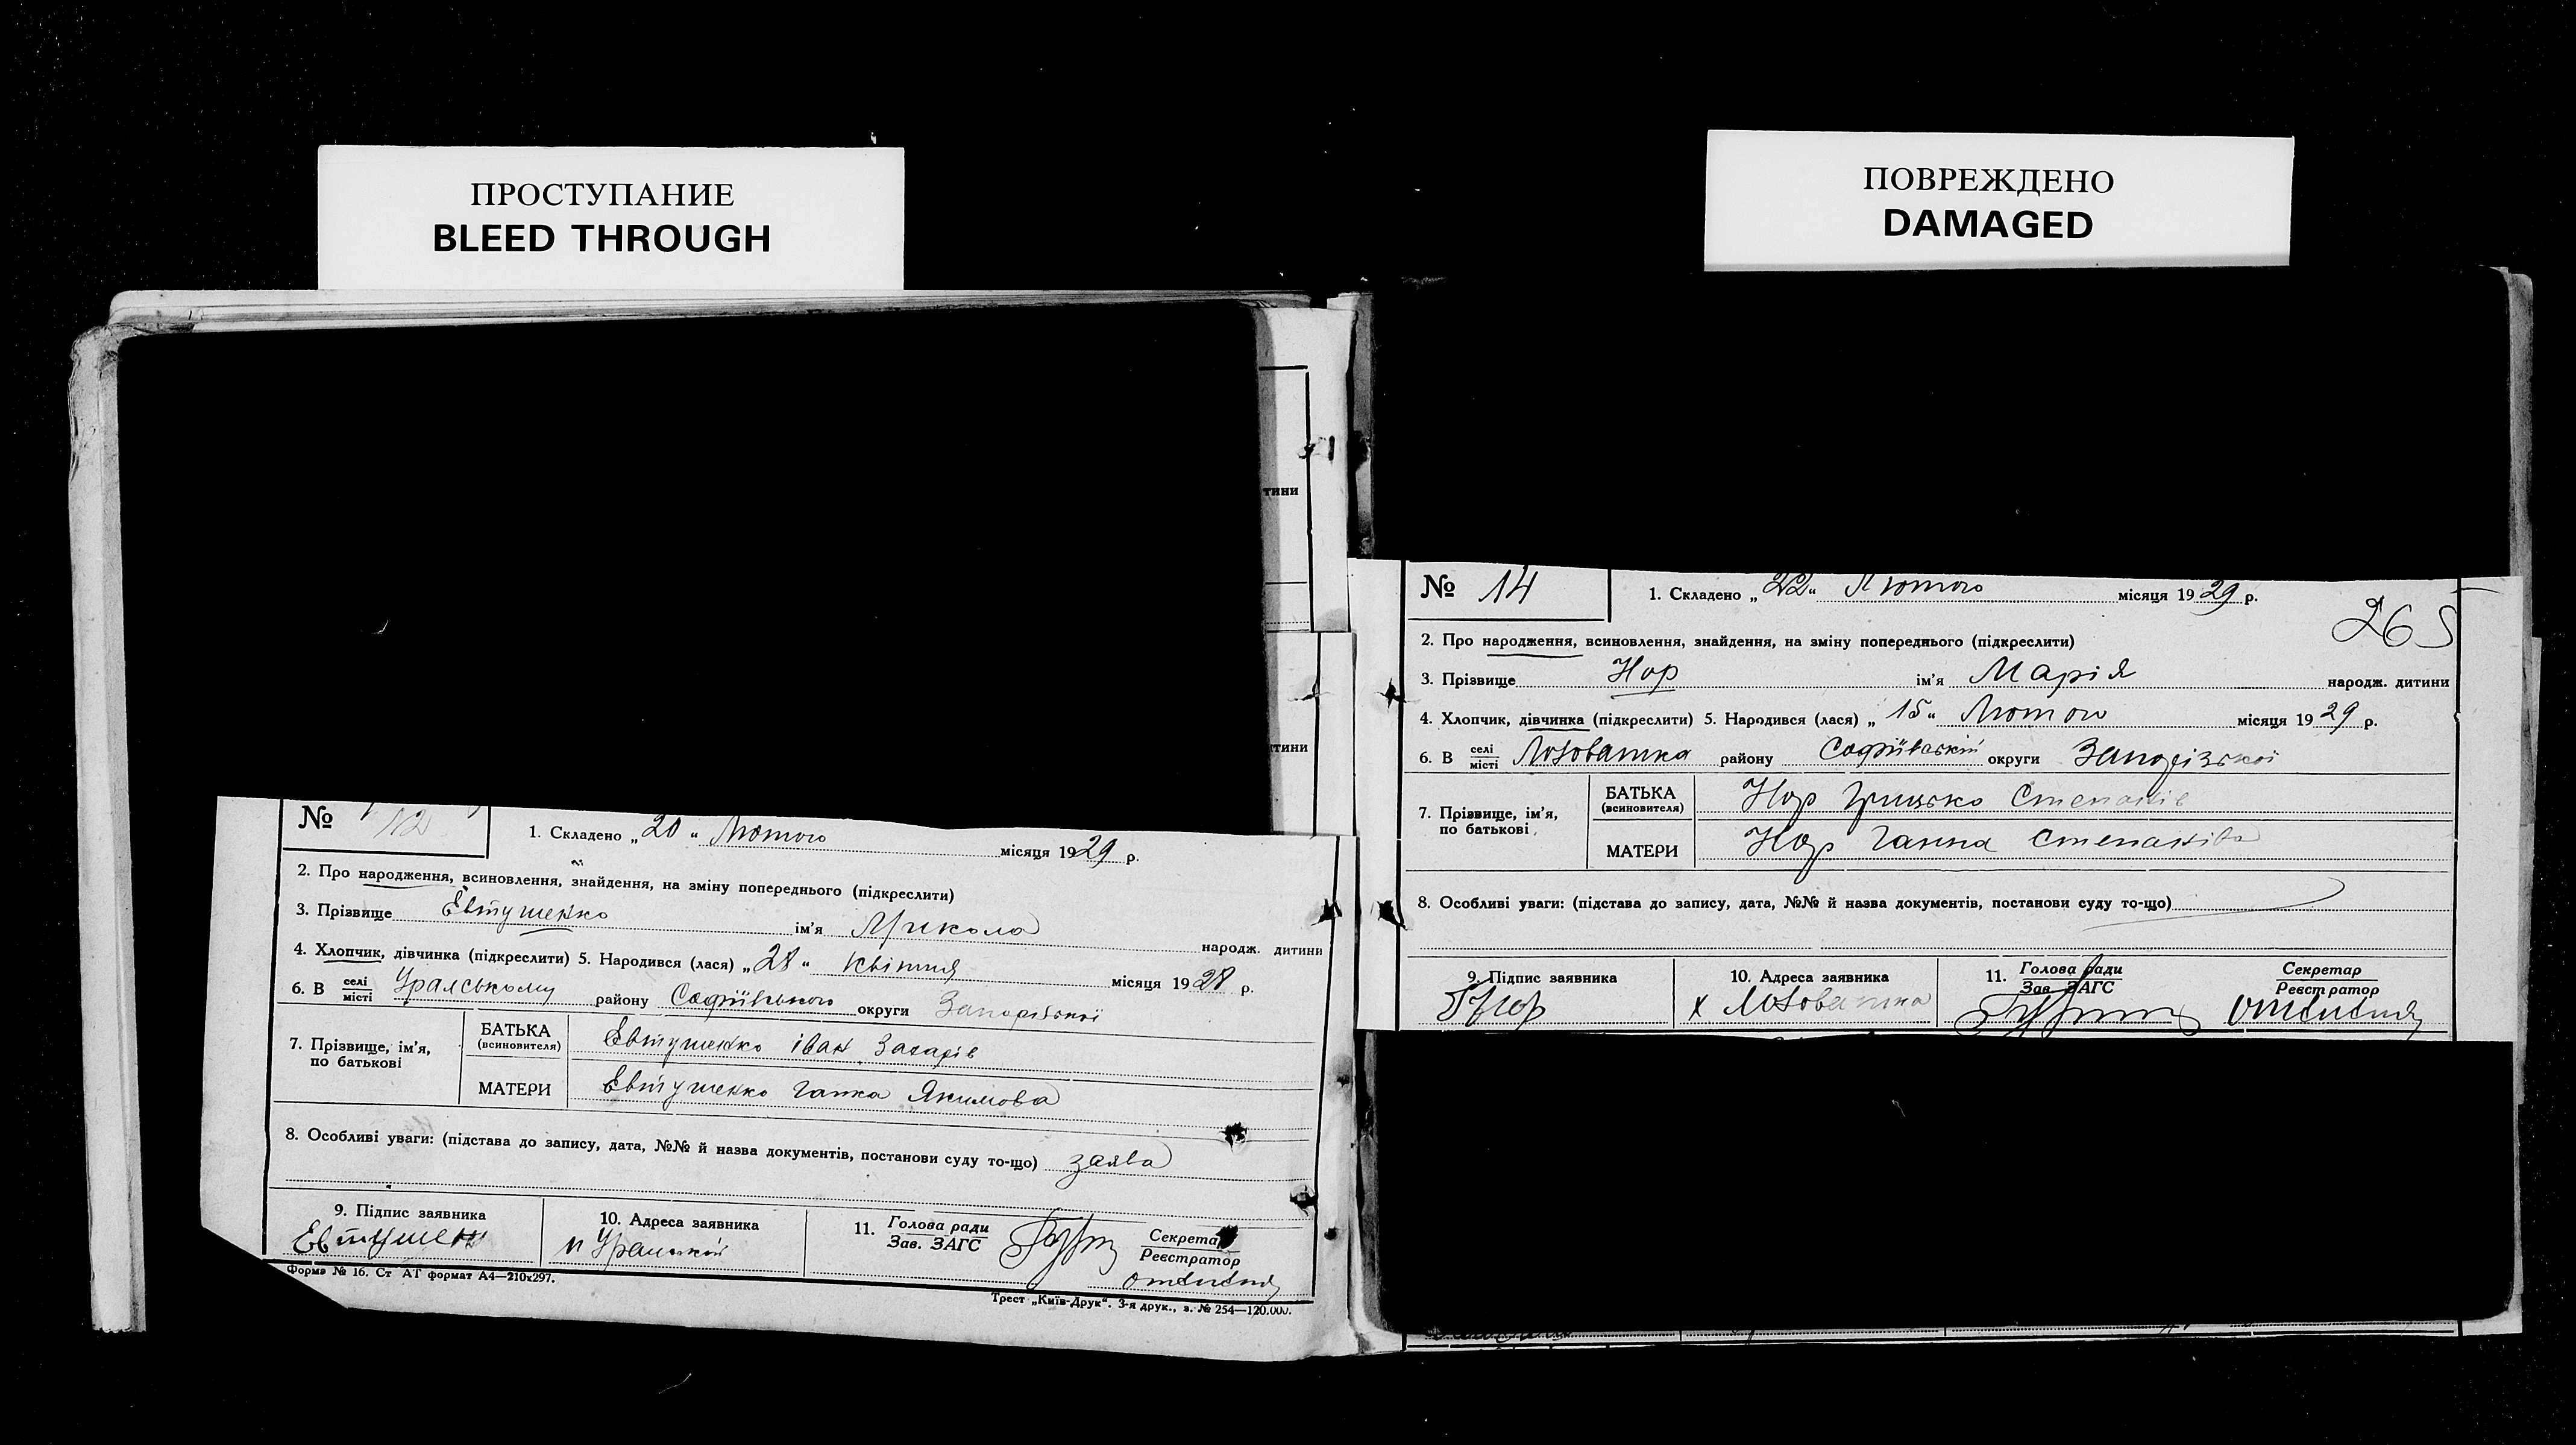 ПРОСТУПАНИЕ
BLEED THROUGH
ПОВРЕЖДЕНО
DAMAGED
тини
тини
№ 12
1. Складено „20“ Лютого місяця 1929 р.
2. Про народження, всиновлення, знайдення, на зміну попереднього (підкреслити)
3. Прізвище Євтушенко ім'я Микола народж. дитини
4. Хлопчик, дівчинка (підкреслити) 5. Народився (лася) „28“ квітня місяця 1928 р.
6. В селі місті Уральському району Софіївського округи Запорізької
7. Прізвище, ім'я, по батькові
БАТЬКА (всиновителя) Євтушенко іван Захарів
МАТЕРИ Євтушенко ганна Якимова
8. Особливі уваги: (підстава до запису, дата, №№ й назва документів, постанови суду то-що) заява
9. Підпис заявника
10. Адреса заявника
11. Голова ради Зав. ЗАГС
Секретар Реєстратор
Форма № 16. Ст АТ формат А4—210х297.
Трест „Київ-Друк“. 3-я друк., з. № 254—120.000.
№ 14
1. Складено „22“ Лютого місяця 1929 р.
265
2. Про народження, всиновлення, знайдення, на зміну попереднього (підкреслити)
3. Прізвище Нор ім'я Марія народж. дитини
4. Хлопчик, дівчинка (підкреслити) 5. Народився (лася) „15“ Лютого місяця 1929 р.
6. В селі місті Лозоватка району Софіївській округи Запорізької
7. Прізвище, ім'я, по батькові
БАТЬКА (всиновителя) Нор Грицько Степанів
МАТЕРИ Нор Ганна Степанівна
8. Особливі уваги: (підстава до запису, дата, №№ й назва документів, постанови суду то-що)
9. Підпис заявника
Г Нор
10. Адреса заявника
х Лозоватка
11. Голова ради Зав. ЗАГС
Секретар Реєстратор